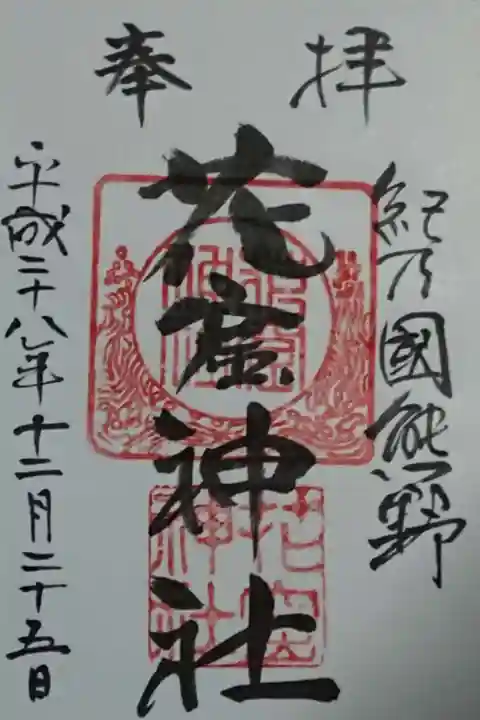 奉拝
紀乃國熊野
花窟神社
花窟
神社
平成二十八年十二月二十五日